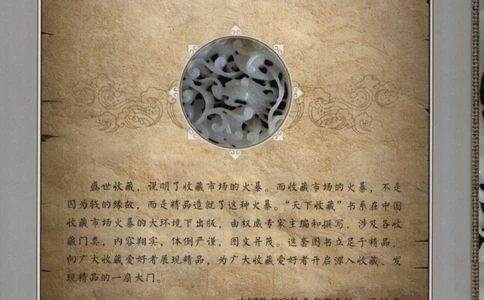 盛世收藏，说明了收藏市场的火暴。而收藏市场的火暴，不是
因为钱的缘故，而是精品造就了这种火暴。“天下收藏”书系在中国
收藏市场火暴的大环境下出版，由权威专家主编和撰写，涉及各收
藏门类，内容翔实，体例严谨，图文并茂。这套图书立足于精品，
向广大收藏爱好者展现精品，为广大收藏爱好者开启深入收藏、发
现精品的一扇大门。